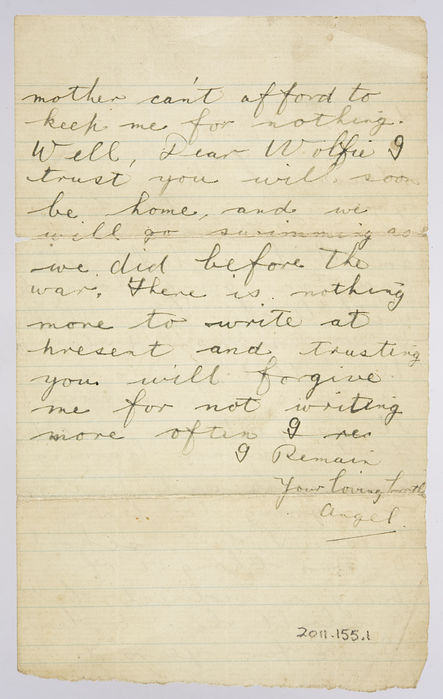 mother can't afford to
keep me for nothing.
Well, Dear Wolfie I
trust you will soon
be home, and we
will go swimming as
we did before the
war. There is nothing
more to write at
present and trusting
you will forgive
me for not writing
more often I
I Remain
Your loving
Angel.
2011.155.1